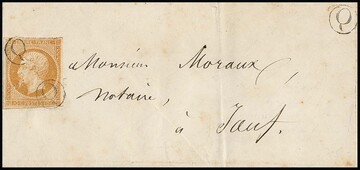 Q
Q
Q
à Monsieur Moraux,
Notaire,
à Jauf.